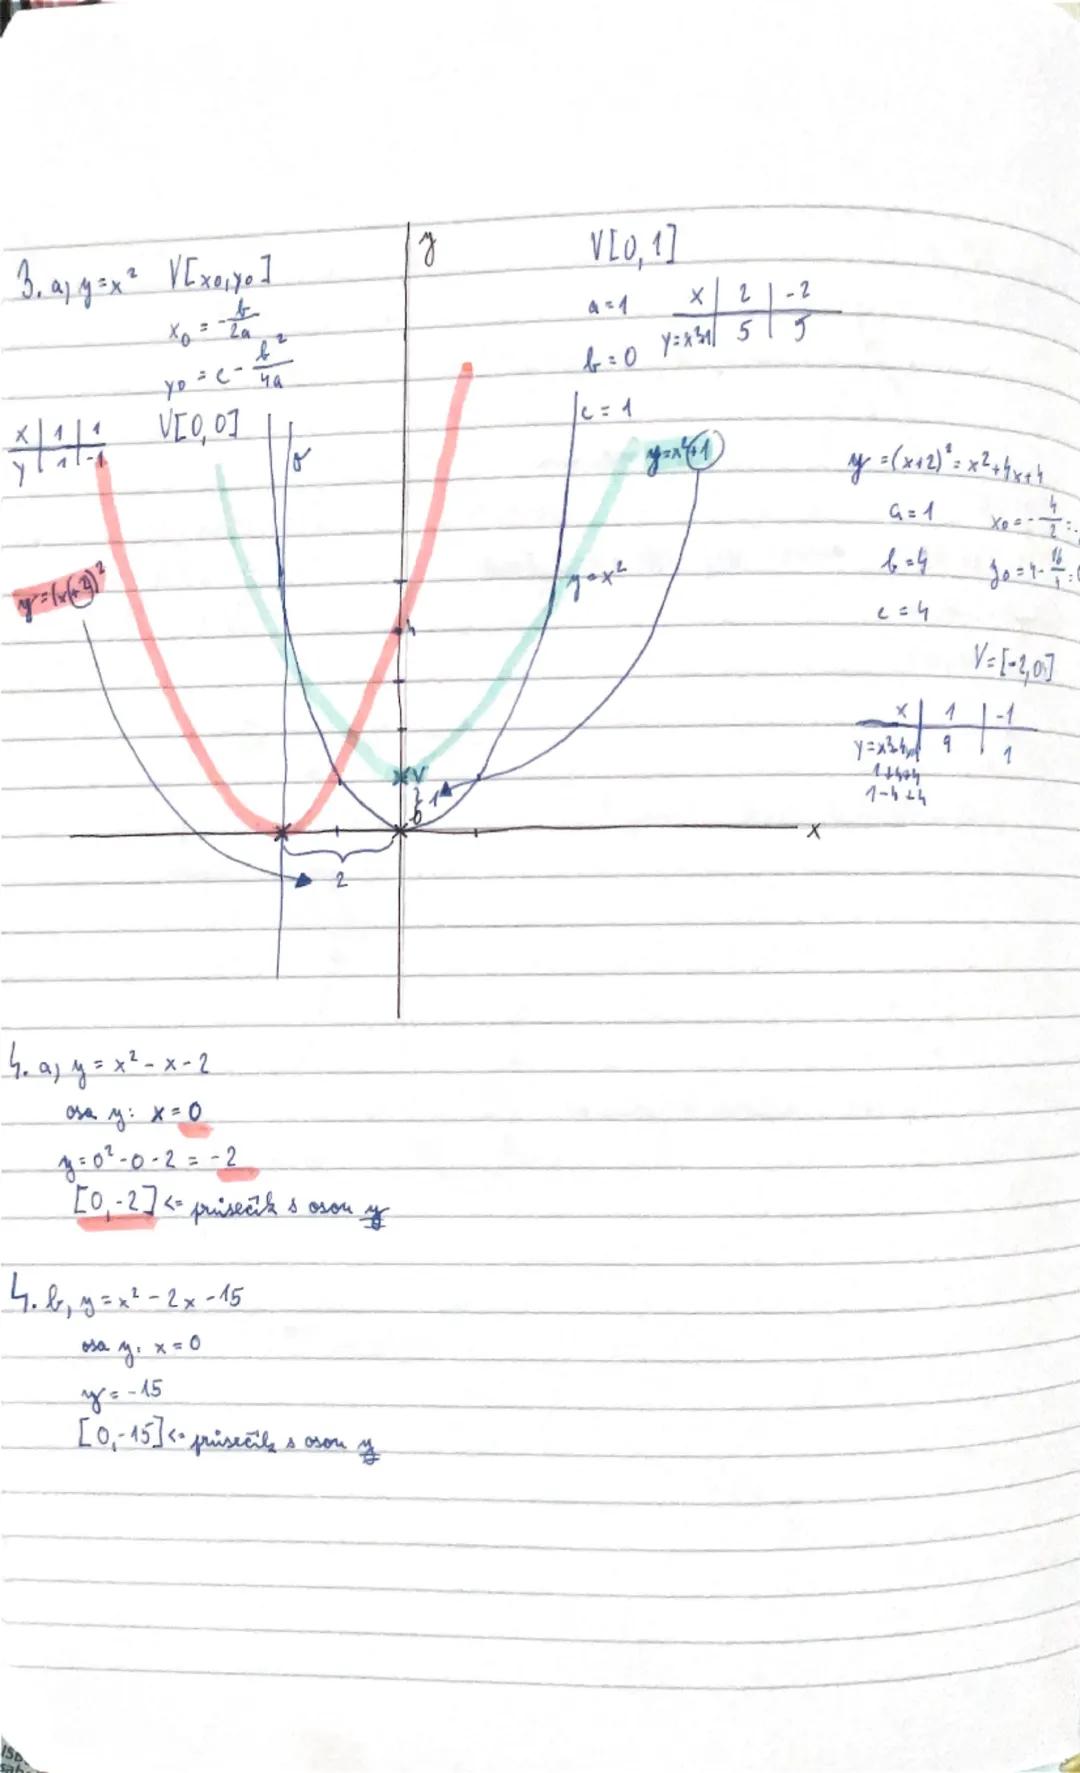 3. a, y = x² V[x₀, y₀]
x₀ = -b/2a
y₀ = c - b²/4a
V[0,0]
x | 1 | 1
y | 1 | -1
y
V[0,1]
a = 1
b = 0
c = 1
x | 2 | -2
y=x²+1 | 5 | 5
σ
y = x²+1
y = x²
y = (x+2)²
y = (x+2)² = x²+4x+4
a = 1
b = 4
c = 4
x₀ = -4/2 =
y₀ = 4 - 16/4 =
V = [-2,0]
x | 1 | -1
9 | 1
1+4+4
1-4+4
4
V
1
0
x
2
4. a, y = x² - x - 2
osa y: x = 0
y = 0² - 0 - 2 = -2
[0,-2] <= průsečík s osou y
4. b, y = x² - 2x - 15
osa y: x = 0
y = -15
[0,-15] <= průsečík s osou y